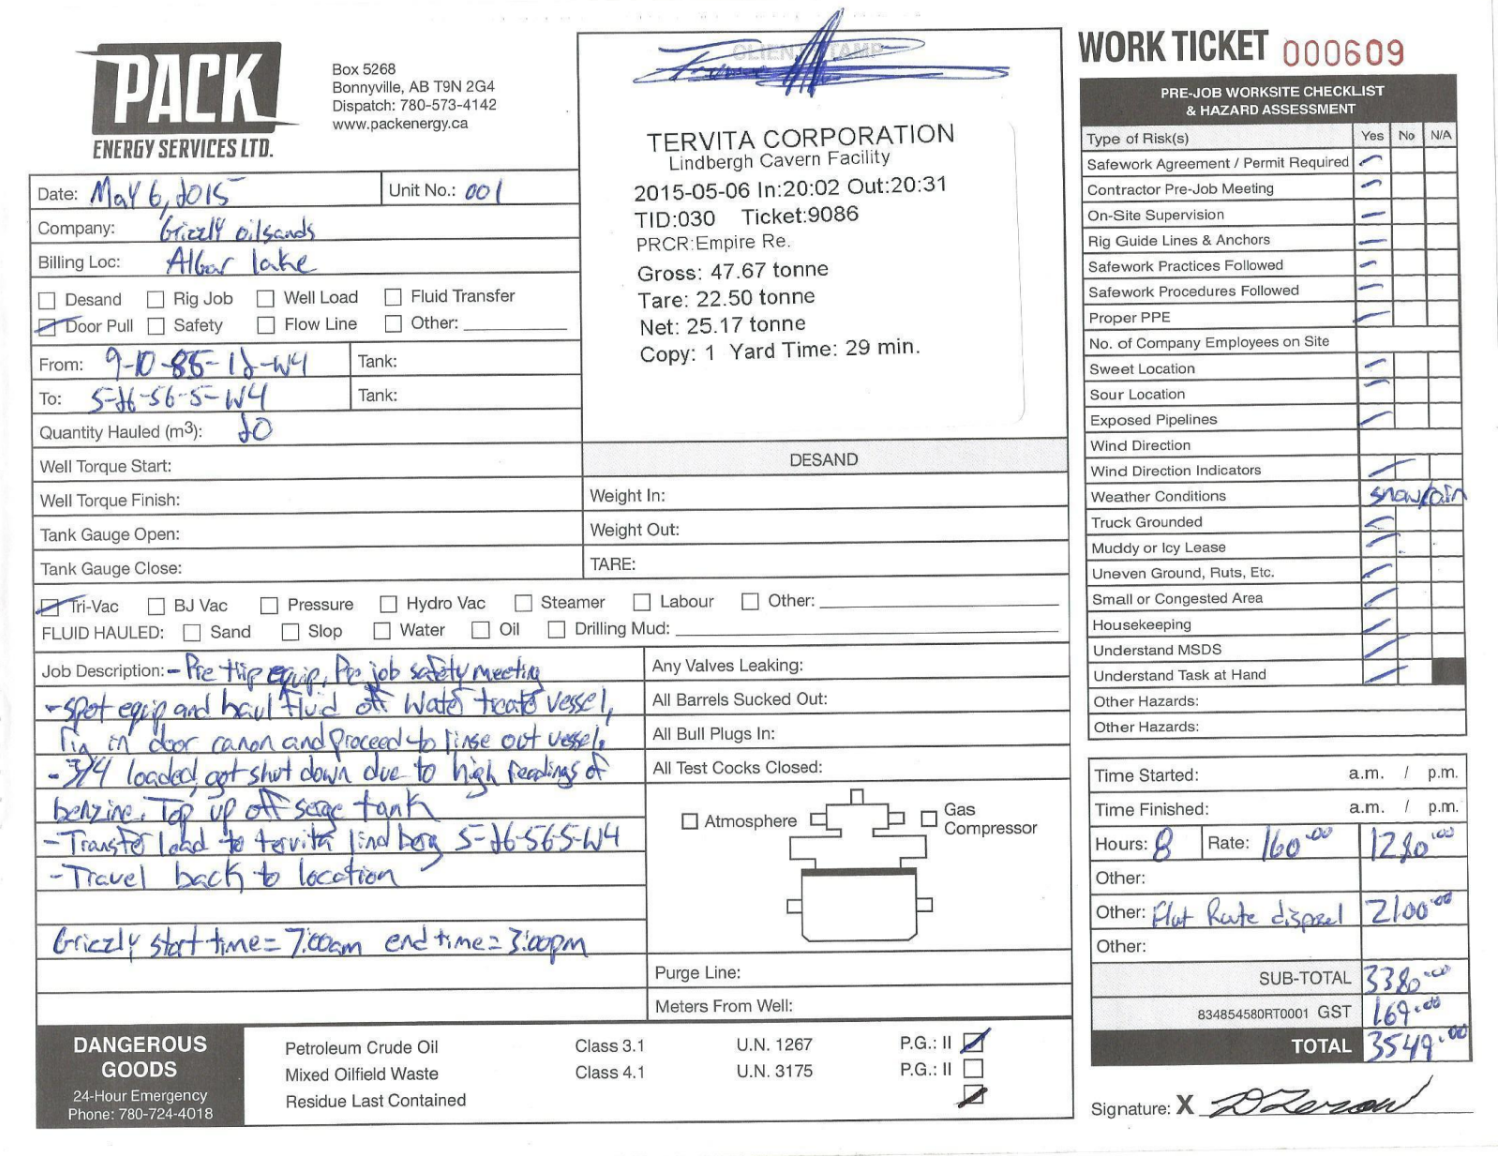 PACK
ENERGY SERVICES LTD.
Box 5268
Bonnyville, AB T9N 2G4
Dispatch: 780-573-4142
www.packenergy.ca
CLIENT STAMP
TERVITA CORPORATION
Lindbergh Cavern Facility
2015-05-06 In:20:02 Out:20:31
TID:030 Ticket:9086
PRCR:Empire Re.
Gross: 47.67 tonne
Tare: 22.50 tonne
Net: 25.17 tonne
Copy: 1 Yard Time: 29 min.
WORK TICKET 000609
Date: May 6, 2015
Unit No.: 001
Company: Grizzly oilsands
Billing Loc: Algar lake
Desand Rig Job Well Load Fluid Transfer
Door Pull Safety Flow Line Other:
From: 9-10-85-12-W4 Tank:
To: 5-26-56-5-W4 Tank:
Quantity Hauled (m3): 20
Well Torque Start:
Well Torque Finish:
Tank Gauge Open:
Tank Gauge Close:
DESAND
Weight In:
Weight Out:
TARE:
Tri-Vac BJ Vac Pressure Hydro Vac Steamer Labour Other:
FLUID HAULED: Sand Slop Water Oil Drilling Mud:
Job Description: - Pre trip equip, Pre job safety meeting
- spot equip and haul fluid off Water treate vessel,
rig in door canon and proceed to rinse out vessel,
- 3/4 loaded, got shut down due to high readings of
benzine. Top up off serge tank
- Transfer load to tervita lindberg 5-26-56-5-W4
- Travel back to location
Grizzly start time = 7:00am end time = 3:00pm
Any Valves Leaking:
All Barrels Sucked Out:
All Bull Plugs In:
All Test Cocks Closed:
Atmosphere
Gas
Compressor
Purge Line:
Meters From Well:
PRE-JOB WORKSITE CHECKLIST
& HAZARD ASSESSMENT
Type of Risk(s) Yes No N/A
Safework Agreement / Permit Required
Contractor Pre-Job Meeting
On-Site Supervision
Rig Guide Lines & Anchors
Safework Practices Followed
Safework Procedures Followed
Proper PPE
No. of Company Employees on Site
Sweet Location
Sour Location
Exposed Pipelines
Wind Direction
Wind Direction Indicators
Weather Conditions snow/rain
Truck Grounded
Muddy or Icy Lease
Uneven Ground, Ruts, Etc.
Small or Congested Area
Housekeeping
Understand MSDS
Understand Task at Hand
Other Hazards:
Other Hazards:
Time Started: a.m. / p.m.
Time Finished: a.m. / p.m.
Hours: 8 Rate: 160.00 1280.00
Other:
Other: Flat Rate disposal 2100.00
Other:
SUB-TOTAL 3380.00
834854580RT0001 GST 169.00
TOTAL 3549.00
Signature: X
DANGEROUS
GOODS
24-Hour Emergency
Phone: 780-724-4018
Petroleum Crude Oil Class 3.1 U.N. 1267 P.G.: II
Mixed Oilfield Waste Class 4.1 U.N. 3175 P.G.: II
Residue Last Contained